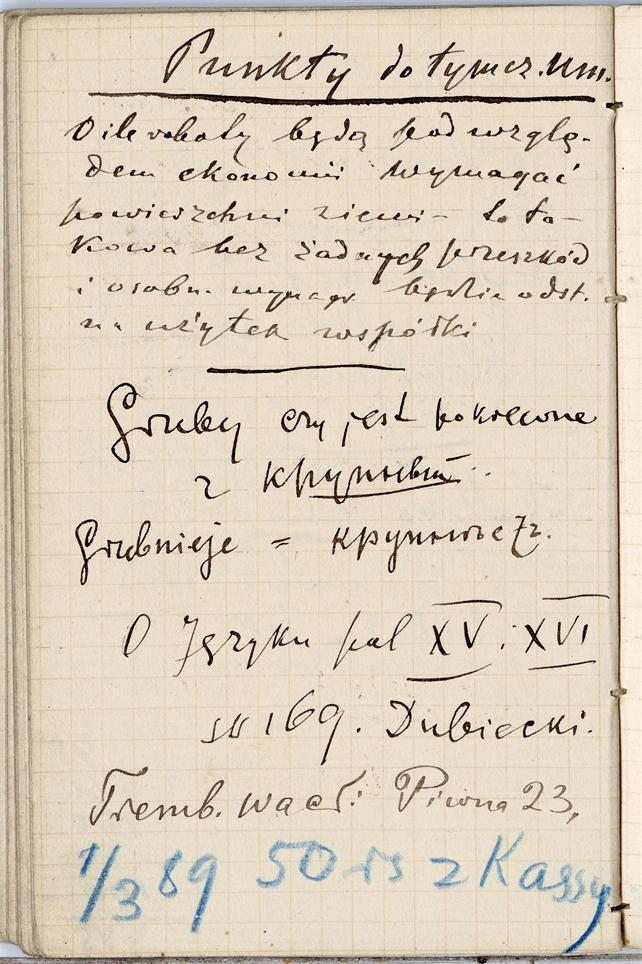 Punkty do tymcz. Um.
O ile roboty będą pod wzglę-
dem ekonomii wymagać
powierzchni ziemi – to ta-
kowa bez żadnych przeszkód
i osobn. wynagr będzie odst.
na użytek wspólki
Gruby czy jest pokrewne
z крупный.
Grubnieje =
O Języku pol XV i XVI
str 169. Dubiecki.
Tremb. Wacł: Piwna 23,
1/3 89 50 rs z Kassy